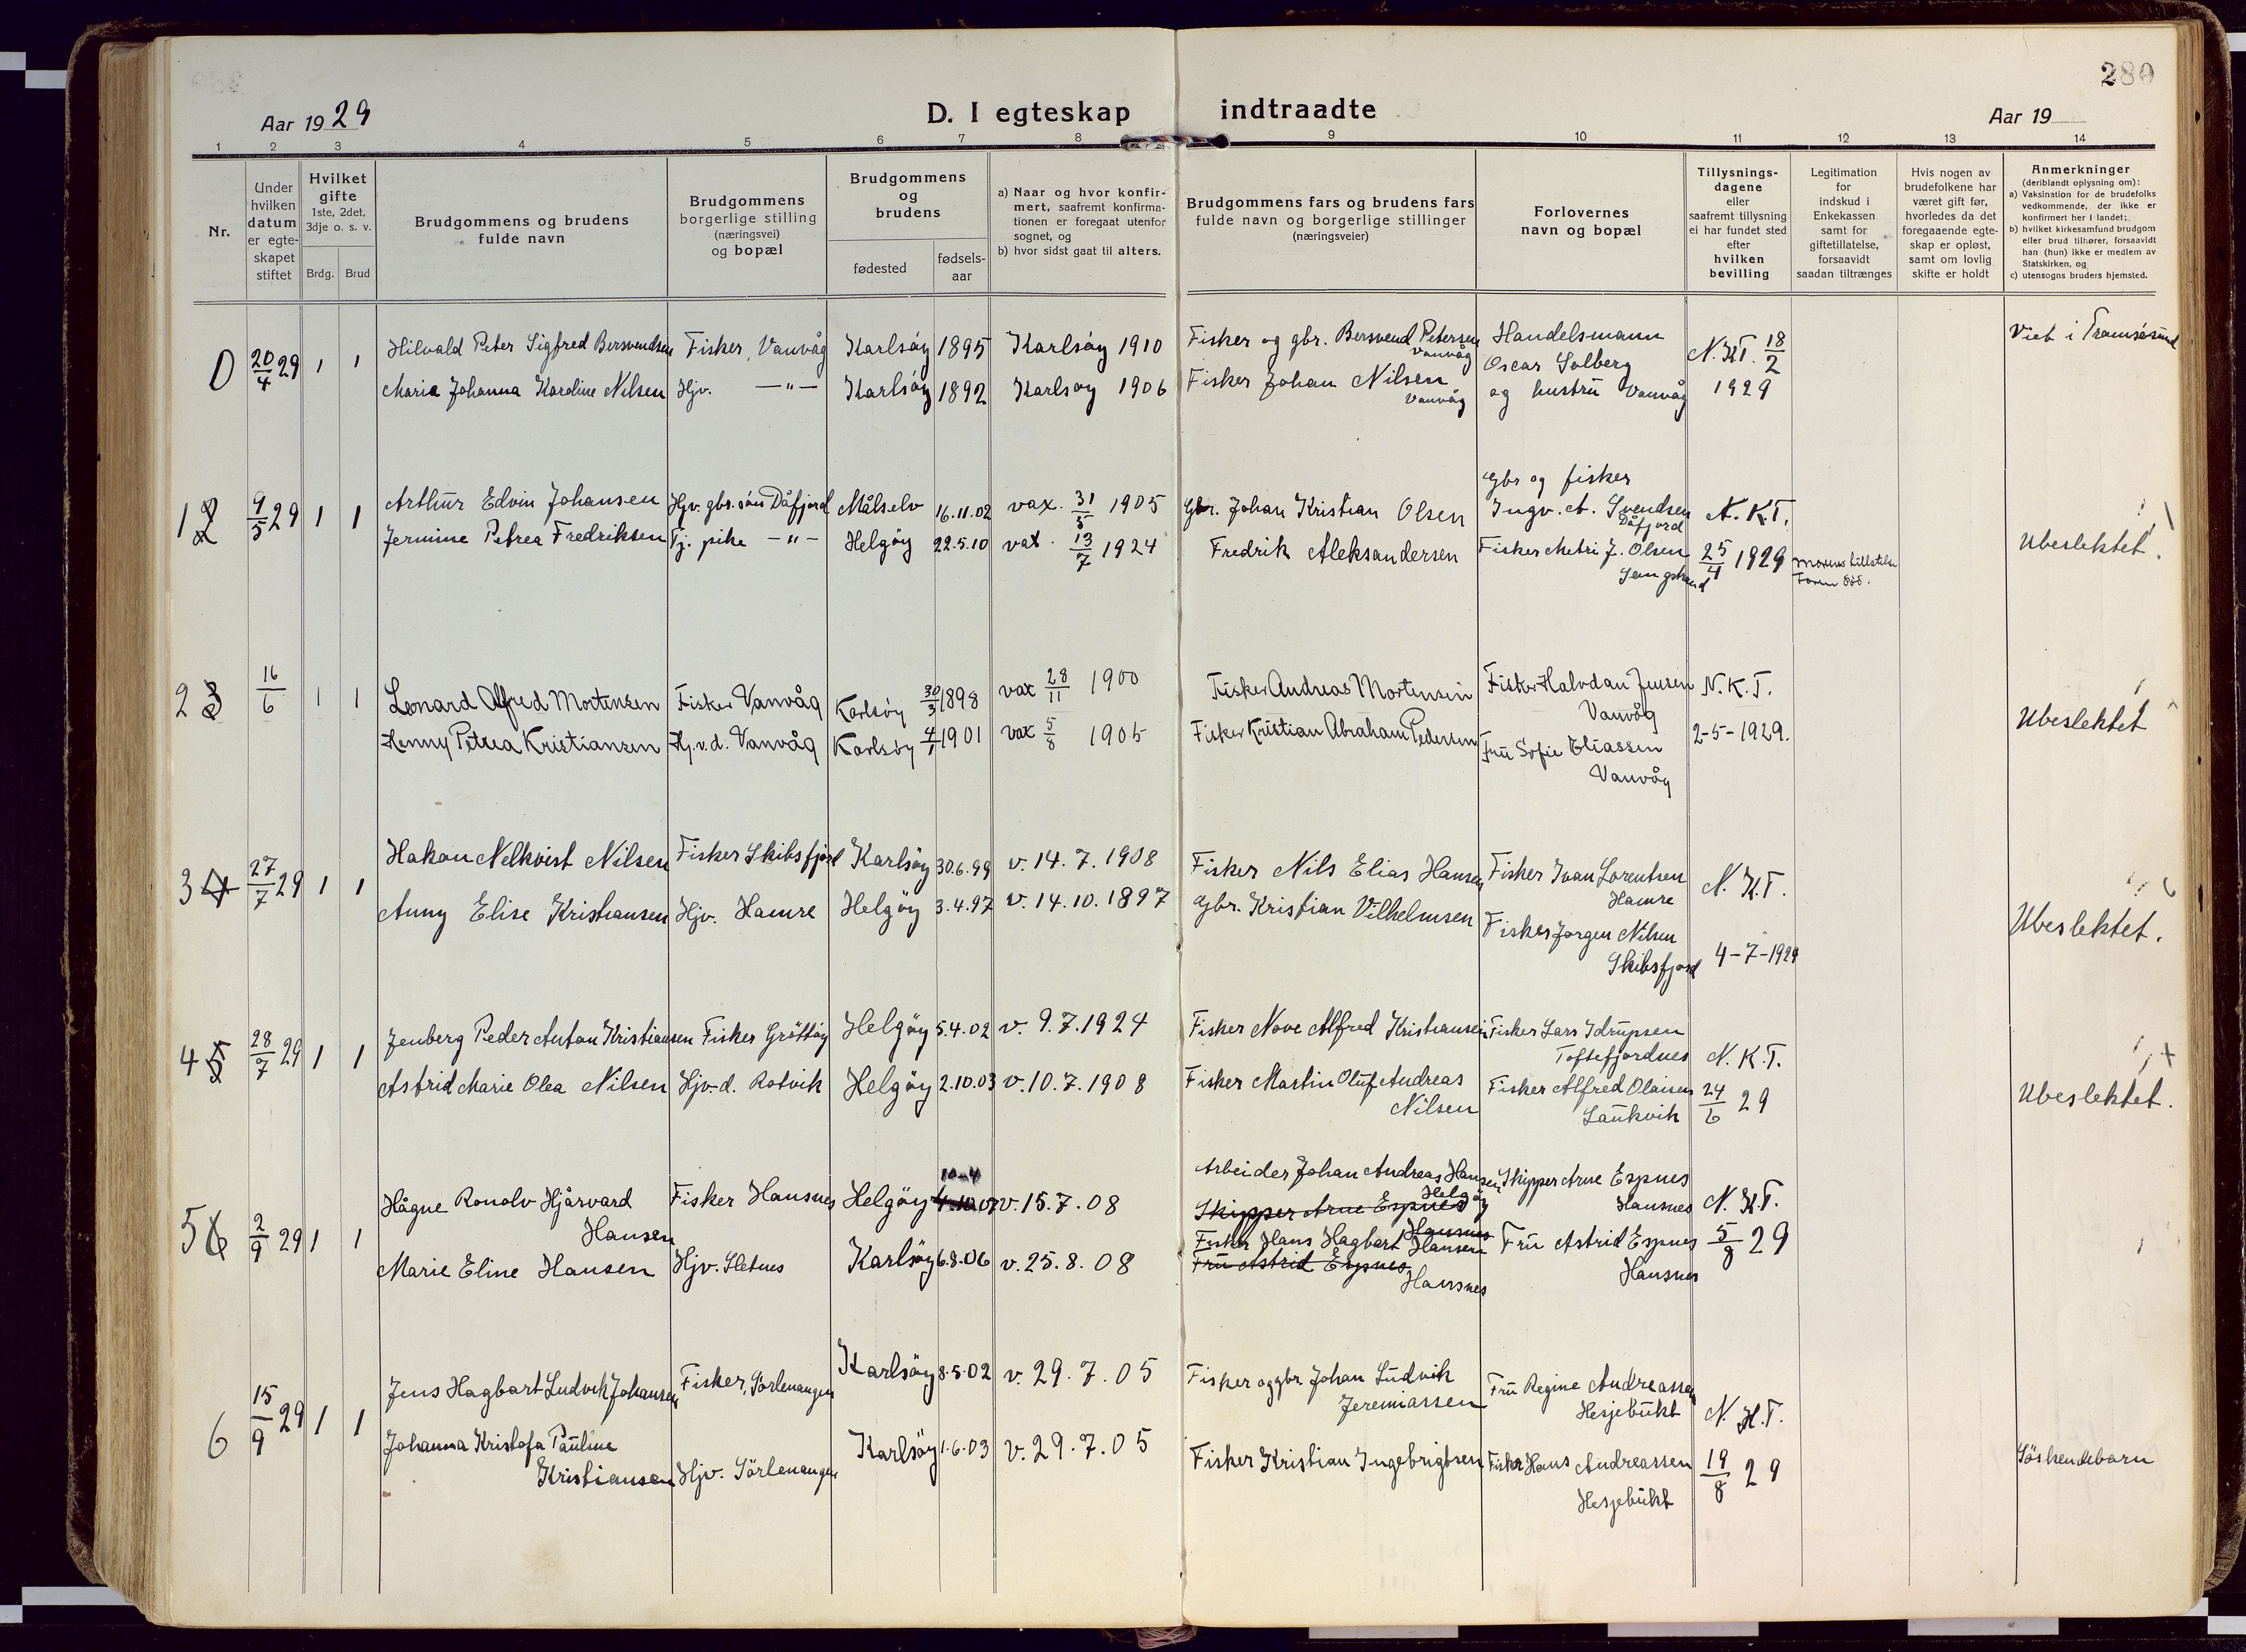 280
Aar 1929
D. I egteskap indtraadte
Aar 19
1 2 3 4 5 6 7 8 9 10 11 12 13 14
Nr.
Under hvilken datum er egteskapet stiftet
Hvilket gifte 1ste, 2det, 3dje o. s. v.
Brdg. Brud
Brudgommens og brudens fulde navn
Brudgommens borgerlige stilling (næringsvei) og bopæl
Brudgommens og brudens
fødested
fødsels-aar
a) Naar og hvor konfirmert, saafremt konfirmationen er foregaat utenfor sognet, og
b) hvor sidst gaat til alters.
Brudgommens fars og brudens fars fulde navn og borgerlige stillinger (næringsveier)
Forlovernes navn og bopæl
Tillysnings-dagene eller saafremt tillysning ei har fundet sted efter hvilken bevilling
Legitimation for indskud i Enkekassen samt for giftetillatelse, forsaavidt saadan tiltrænges
Hvis nogen av brudefolkene har været gift før, hvorledes da det foregaaende egteskap er opløst, samt om lovlig skifte er holdt
Anmerkninger (deriblandt oplysning om):
a) Vaksination for de brudefolks vedkommende, der ikke er konfirmert her i landet;
b) hvilket kirkesamfund brudgom eller brud tilhører, forsaavidt han (hun) ikke er medlem av Statskirken, og
c) utensogns bruders hjemsted.
0 20/4 29 1 1 Hilvald Peter Sigfred Bersvendsen Fisker, Vanvåg Karlsöy 1895 Karlsöy 1910 Fisker og gbr. Bersvend Petersen Vanvåg Handelsmann Oscar Solberg N.K.T. 18/2 Viet i Tromsösund
Maria Johanna Karoline Nilsen Hjv. —"— Karlsöy 1892 Karlsöy 1906 Fisker Johan Nilsen Vanvåg og hustrü Vanvåg 1929
1 2 9/5 29 1 1 Arthür Edvin Johansen Hjv. gbr. sön Dåfjord Målselv 16.11.02 vax. 31/5 1905 Gbr. Johan Kristian Olsen Gbr og fisker Ingv. A. Svendsen Dåfjord N.K.T.
Jermine Petrea Fredriksen Tj. pike —"— Helgöy 22.5.10 vax. 13/7 1924 Fredrik Aleksandersen Fisker Metri J. Olsen 25/4 1929 Ubeslektet.
2 3 16/6 1 1 Lenard Alfred Mortensen Fisker Vanvåg Karlsöy 30/3 1898 vax 28/11 1900 Fisker Andreas Mortensen Fisker Halvdan Jensen Vanvåg N.K.T.
Henny Petrea Kristiansen Hj.v.d. Vanvåg Karlsöy 4/1 1901 vax 5/8 1905 Fisker Kristian Abraham Pedersen Frü Sofie Eliassen Vanvåg 2-5-1929. Ubeslektet
3 4 27/7 29 1 1 Hakon Nelkvist Nilsen Fisker Skibsfjord Karlsöy 30.6.99 v. 14. 7. 1908 Fisker Nils Elias Hansen Fisker Ivan Lorentsen Hamre N.K.T.
Anny Elise Kristiansen Hjv. Hamre Helgöy 3.4.97 v. 14.10.1897 Gbr. Kristian Vilhelmsen Fisker Jörgen Nilsen Skibsfjord 4-7-1929 Ubeslektet.
4 5 28/7 29 1 1 Jenberg Peder Anton Kristiansen Fisker Gröttöy Helgöy 5.4.02 v. 9.7.1924 Fisker Nove Alfred Kristiansen Fisker Lars Idrüpsen Toftefjordnes N.K.T.
Astrid Marie Olea Nilsen Hjv. d. Rotvik Helgöy 2.10.03 v. 10.7.1908 Fisker Martin Olüf Andreas Nilsen Fisker Alfred Olaisen Laükvik 24/6 29 Ubeslektet.
5 6 2/9 29 1 1 Hågne Ronolv Hjårvard Hansen Fisker Hansnes Helgöy 10-4 4.10.07 v. 15.7.08 Arbeider Johan Andreas Hansen Helgöy Skipper Arne Espnes Hansnes Skipper Arne Espnes Hansnes N.K.T.
Marie Eline Hansen Hjv. Sletnes Karlsöy 6.8.06 v. 25.8.08 Fisker Hans Hagbart Hansen Frü Astrid Espnes Hansnes Frü Astrid Espnes Hansnes 5/8 29
6 15/9 29 1 1 Jens Hagbart Ludvik Johansen Fisker, Sörlenangen Karlsöy 8.5.02 v. 29.7.05 Fisker og gbr. Johan Lüdvik Jeremiassen Frü Regine Andreassen Hesjebükt N.K.T.
Johanna Kristofa Paüline Kristiansen Hjv. Sörlenangen Karlsöy 1.6.03 v. 29.7.05 Fisker Kristian Ingebrigtsen Fisker Hans Andreassen Hesjebükt 19/8 29 Söskendebarn